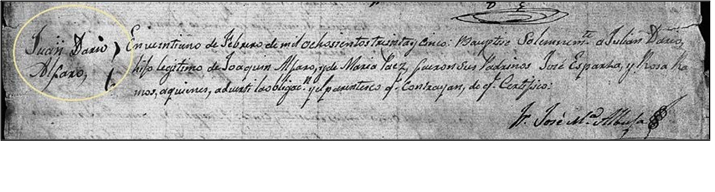 Juan Dario
Alfaro,
En veintiuno de Febrero de mil ochosientos treinta y cinco: Bauptise Solemnemte. a Julian Dario,
hijo legitimo de Joaquin Alfaro, y de Maria Paez, fueron sus Padrinos José Esparza, y Rosa Ra-
mos, a quienes, adverti la obligacn. y el parentesco qe. Contrayan, de qe. Certifico:
Fr. José Ma.